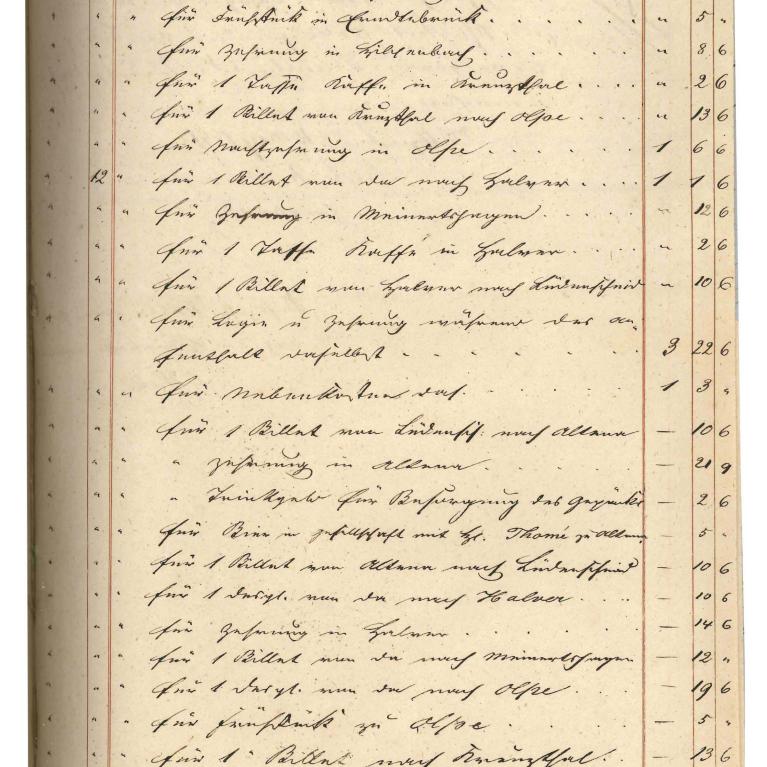 " " für Frühstück in Erndtebrück. " 5 "
" " für Zehrung in Hilchenbach. " 8 6
" " für 1 Tasse Kaffe in Kreuzthal " 2 6
" " für 1 Billet von Kreuzthal nach Olpe " 13 6
" " für Nachtzehrung in Olpe 1 6 6
12 " für 1 Billet von da nach Halver 1 1 6
" " für Zehrung in Meinertshagen " 12 6
" " für 1 Tasse Kaffé in Halver " 2 6
" " für 1 Billet von Halver nach Lüdenscheid " 10 6
" " für Logis u Zehrung während des au-
fenthalt daselbst 3 22 6
" " für Nebenkosten das. 1 3 "
" " für 1 Billet von Lüdensch: nach Altena — 10 6
" " " Zehrung in Altena — 21 9
" " " Trinkgeld für Besorgung des Gepäcks — 2 6
" " für Bier in Gesellschaft mit Hr. Thomé zu Altena — 5 "
" " für 1 Billet von Altena nach Lüdenscheid — 10 6
" " für 1 desgl. von da nach Halver — 10 6
" " für Zehrung in Halver — 14 6
" " für 1 Billet von da nach Meinertshagen — 12 "
" " für 1 desgl. von da nach Olpe — 19 6
" " für Frühstück zu Olpe — 5 "
" " für 1 Billet nach Kreuzthal. — 13 6